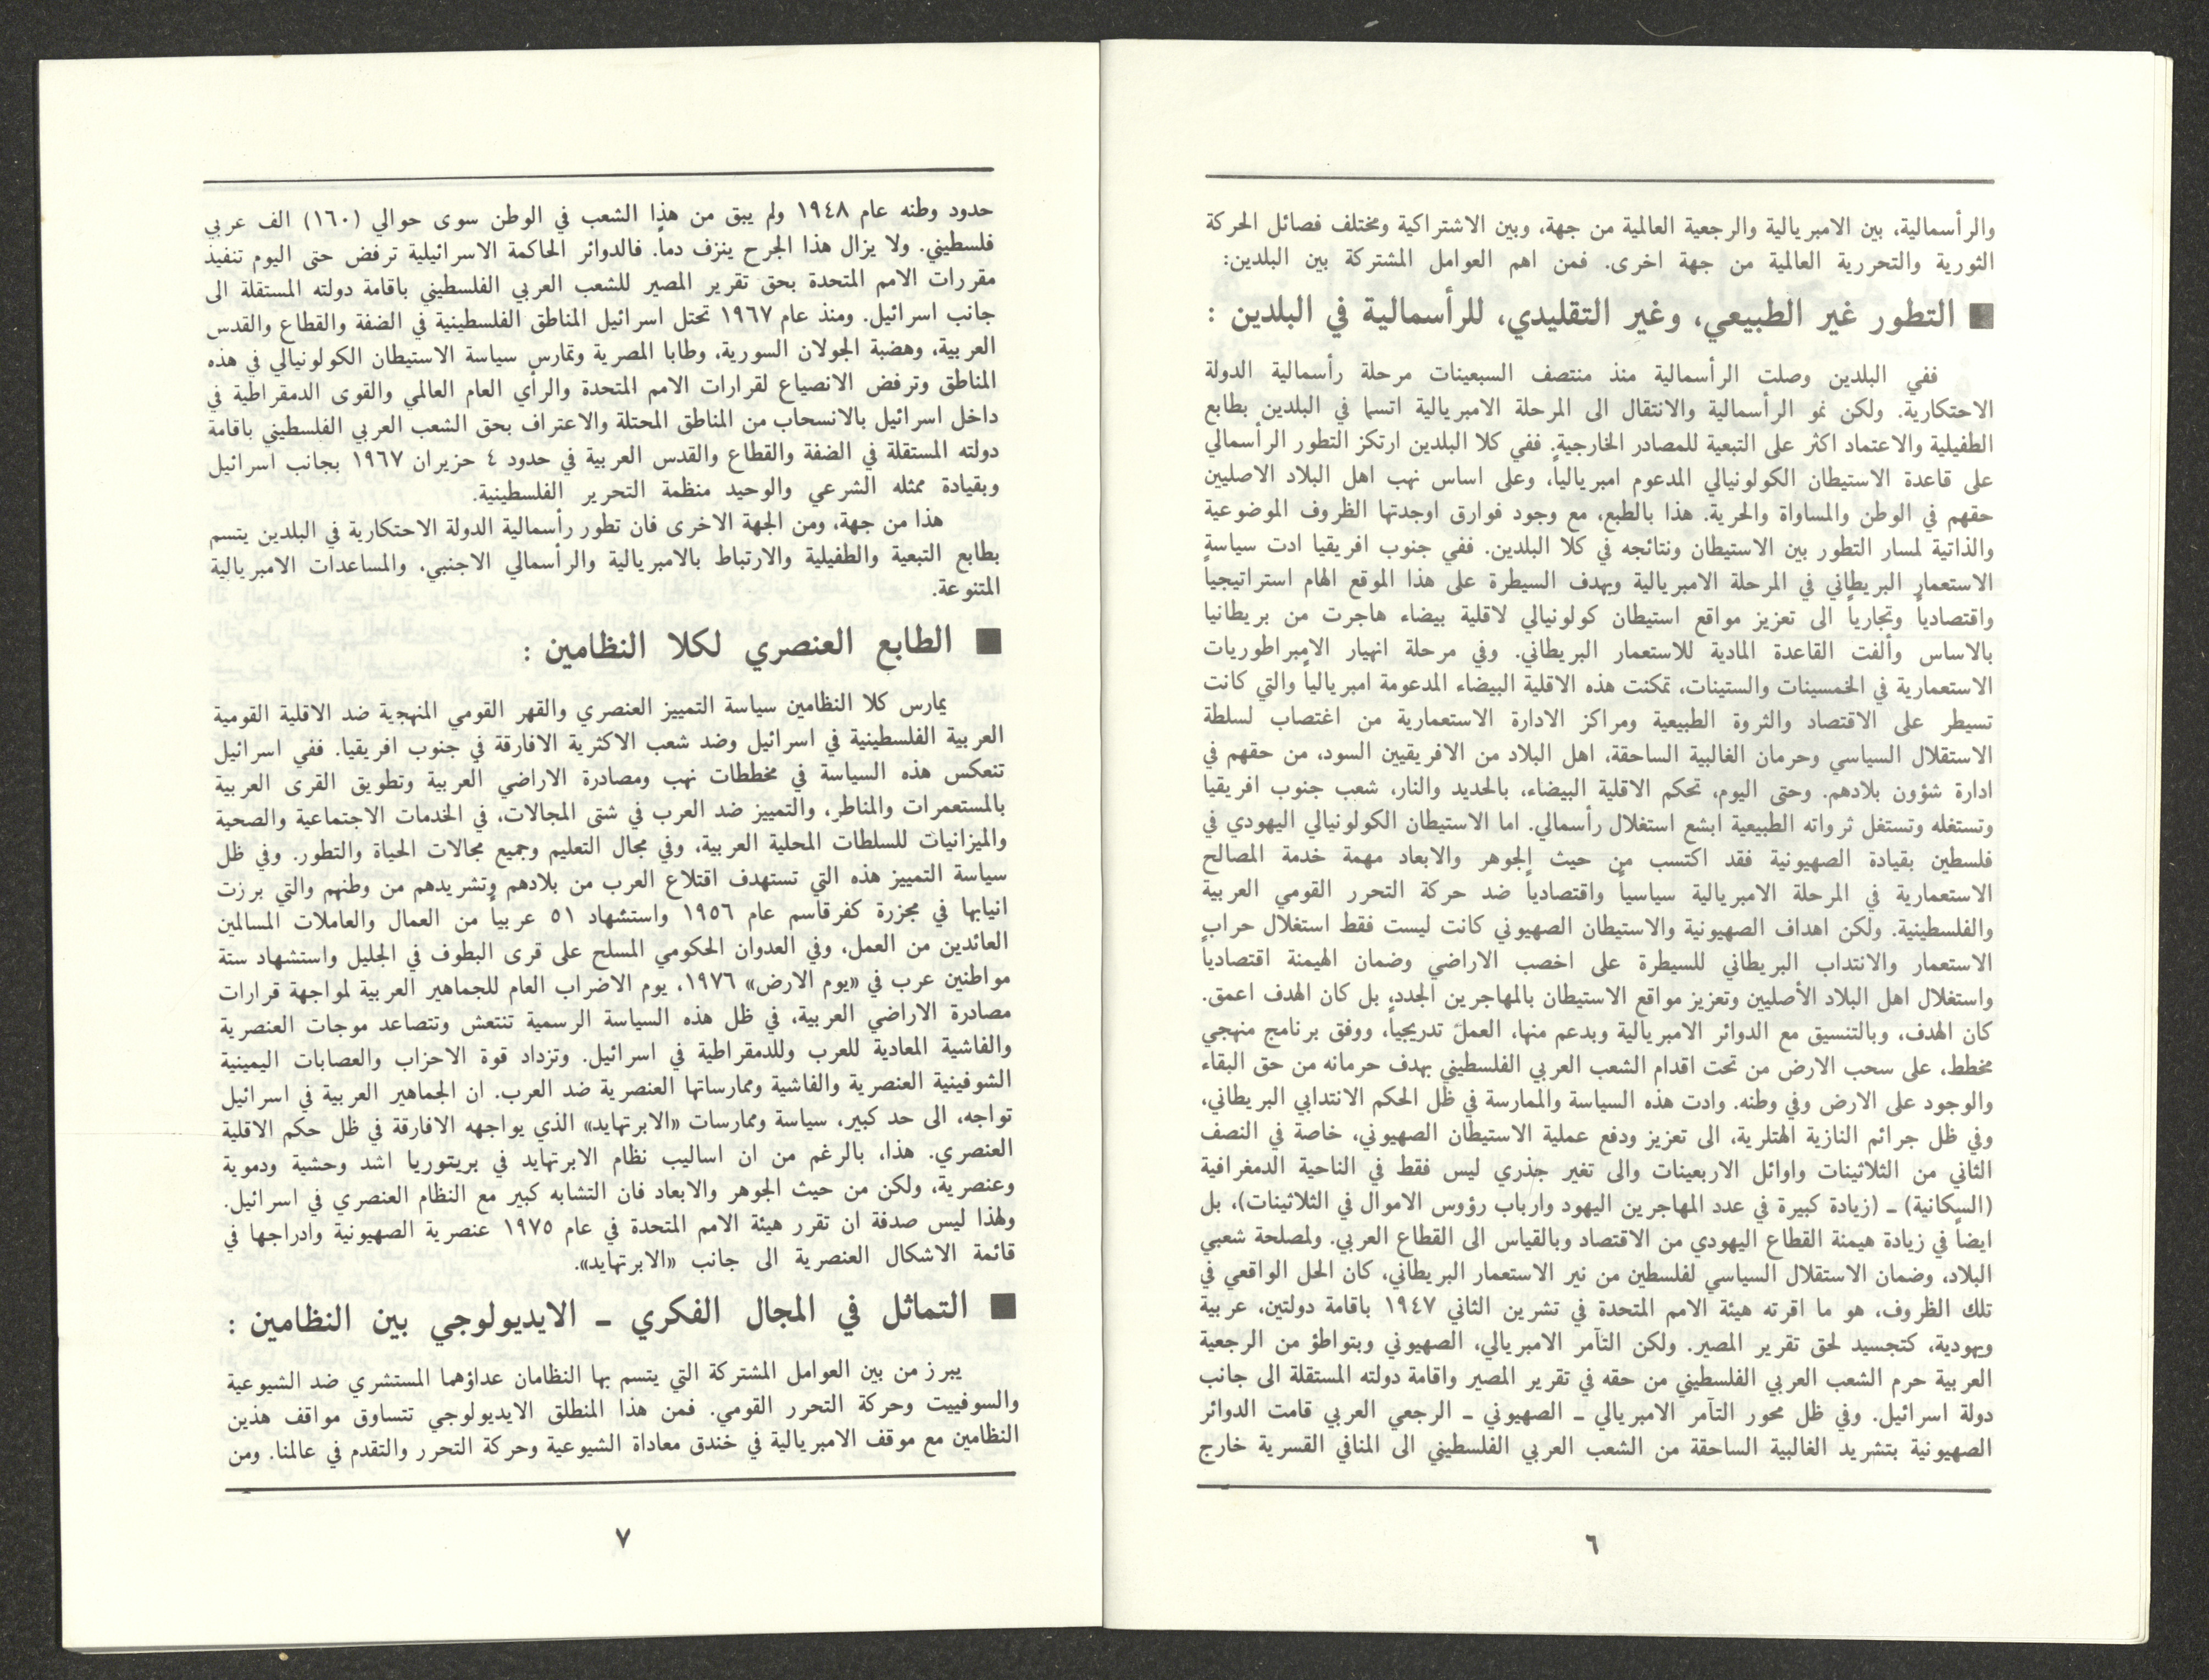 والرأسمالية، بين الامبريالية والرجعية العالمية من جهة، وبين الاشتراكية ومختلف فصائل الحركة
الثورية والتحررية العالمية من جهة اخرى. فمن اهم العوامل المشتركة بين البلدين:
■ التطور غير الطبيعي، وغير التقليدي، للرأسمالية في البلدين :
ففي البلدين وصلت الرأسمالية منذ منتصف السبعينات مرحلة رأسمالية الدولة
الاحتكارية. ولكن نمو الرأسمالية والانتقال الى المرحلة الامبريالية اتسما في البلدين بطابع
الطفيلية والاعتماد اكثر على التبعية للمصادر الخارجية. ففي كلا البلدين ارتكز التطور الرأسمالي
على قاعدة الاستيطان الكولونيالي المدعوم امبريالياً، وعلى اساس نهب اهل البلاد الاصليين
حقهم في الوطن والمساواة والحرية. هذا بالطبع، مع وجود فوارق اوجدتها الظروف الموضوعية
والذاتية لمسار التطور بين الاستيطان ونتائجه في كلا البلدين. ففي جنوب افريقيا ادت سياسة
الاستعمار البريطاني في المرحلة الامبريالية وبهدف السيطرة على هذا الموقع الهام استراتيجياً
واقتصادياً وتجارياً الى تعزيز مواقع استيطان كولونيالي لاقلية بيضاء هاجرت من بريطانيا
بالاساس وألفت القاعدة المادية للاستعمار البريطاني. وفي مرحلة انهيار الامبراطوريات
الاستعمارية في الخمسينات والستينات، تمكنت هذه الاقلية البيضاء المدعومة امبريالياً والتي كانت
تسيطر على الاقتصاد والثروة الطبيعية ومراكز الادارة الاستعمارية من اغتصاب لسلطة
الاستقلال السياسي وحرمان الغالبية الساحقة، اهل البلاد من الافريقيين السود، من حقهم في
ادارة شؤون بلادهم. وحتى اليوم، تحكم الاقلية البيضاء، بالحديد والنار، شعب جنوب افريقيا
وتستغله وتستغل ثرواته الطبيعية ابشع استغلال رأسمالي. اما الاستيطان الكولونيالي اليهودي في
فلسطين بقيادة الصهيونية فقد اكتسب من حيث الجوهر والابعاد مهمة خدمة المصالح
الاستعمارية في المرحلة الامبريالية سياسياً واقتصادياً ضد حركة التحرر القومي العربية
والفلسطينية. ولكن اهداف الصهيونية والاستيطان الصهيوني كانت ليست فقط استغلال حراب
الاستعمار والانتداب البريطاني للسيطرة على اخصب الاراضي وضمان الهيمنة اقتصادياً
واستغلال اهل البلاد الأصليين وتعزيز مواقع الاستيطان بالمهاجرين الجدد، بل كان الهدف اعمق.
كان الهدف، وبالتنسيق مع الدوائر الامبريالية وبدعم منها، العمل تدريجياً، ووفق برنامج منهجي
مخطط، على سحب الارض من تحت اقدام الشعب العربي الفلسطيني بهدف حرمانه من حق البقاء
والوجود على الارض وفي وطنه. وادت هذه السياسة والممارسة في ظل الحكم الانتدابي البريطاني،
وفي ظل جرائم النازية الهتلرية، الى تعزيز ودفع عملية الاستيطان الصهيوني، خاصة في النصف
الثاني من الثلاثينات واوائل الاربعينات والى تغير جذري ليس فقط في الناحية الدمغرافية
(السكانية) ـ (زيادة كبيرة في عدد المهاجرين اليهود وارباب رؤوس الاموال في الثلاثينات)، بل
ايضاً في زيادة هيمنة القطاع اليهودي من الاقتصاد وبالقياس الى القطاع العربي. ولمصلحة شعبي
البلاد، وضمان الاستقلال السياسي لفلسطين من نير الاستعمار البريطاني، كان الحل الواقعي في
تلك الظروف، هو ما اقرته هيئة الامم المتحدة في تشرين الثاني ١٩٤٧ باقامة دولتين، عربية
ويهودية، كتجسيد لحق تقرير المصير. ولكن التآمر الامبريالي، الصهيوني وبتواطؤ من الرجعية
العربية حرم الشعب العربي الفلسطيني من حقه في تقرير المصير واقامة دولته المستقلة الى جانب
دولة اسرائيل. وفي ظل محور التآمر الامبريالي ـ الصهيوني ـ الرجعي العربي قامت الدوائر
الصهيونية بتشريد الغالبية الساحقة من الشعب العربي الفلسطيني الى المنافي القسرية خارج
٦
حدود وطنه عام ١٩٤٨ ولم يبق من هذا الشعب في الوطن سوى حوالي (١٦٠) الف عربي
فلسطيني. ولا يزال هذا الجرح ينزف دماً. فالدوائر الحاكمة الاسرائيلية ترفض حتى اليوم تنفيذ
مقررات الامم المتحدة بحق تقرير المصير للشعب العربي الفلسطيني باقامة دولته المستقلة الى
جانب اسرائيل. ومنذ عام ١٩٦٧ تحتل اسرائيل المناطق الفلسطينية في الضفة والقطاع والقدس
العربية، وهضبة الجولان السورية، وطابا المصرية وتمارس سياسة الاستيطان الكولونيالي في هذه
المناطق وترفض الانصياع لقرارات الامم المتحدة والرأي العام العالمي والقوى الدمقراطية في
داخل اسرائيل بالانسحاب من المناطق المحتلة والاعتراف بحق الشعب العربي الفلسطيني باقامة
دولته المستقلة في الضفة والقطاع والقدس العربية في حدود ٤ حزيران ١٩٦٧ بجانب اسرائيل
وبقيادة ممثله الشرعي والوحيد منظمة التحرير الفلسطينية.
هذا من جهة، ومن الجهة الاخرى فان تطور رأسمالية الدولة الاحتكارية في البلدين يتسم
بطابع التبعية والطفيلية والارتباط بالامبريالية والرأسمالي الاجنبي، والمساعدات الامبريالية
المتنوعة.
■ الطابع العنصري لكلا النظامين :
يمارس كلا النظامين سياسة التمييز العنصري والقهر القومي المنهجية ضد الاقلية القومية
العربية الفلسطينية في اسرائيل وضد شعب الاكثرية الافارقة في جنوب افريقيا. ففي اسرائيل
تنعكس هذه السياسة في مخططات نهب ومصادرة الاراضي العربية وتطويق القرى العربية
بالمستعمرات والمناطر، والتمييز ضد العرب في شتى المجالات، في الخدمات الاجتماعية والصحية
والميزانيات للسلطات المحلية العربية، وفي مجال التعليم وجميع مجالات الحياة والتطور. وفي ظل
سياسة التمييز هذه التي تستهدف اقتلاع العرب من بلادهم وتشريدهم من وطنهم والتي برزت
انيابها في مجزرة كفرقاسم عام ١٩٥٦ واستشهاد ٥١ عربياً من العمال والعاملات المسالمين
العائدين من العمل، وفي العدوان الحكومي المسلح على قرى البطوف في الجليل واستشهاد ستة
مواطنين عرب في «يوم الارض» ١٩٧٦، يوم الاضراب العام للجماهير العربية لمواجهة قرارات
مصادرة الاراضي العربية، في ظل هذه السياسة الرسمية تنتعش وتتصاعد موجات العنصرية
والفاشية المعادية للعرب وللدمقراطية في اسرائيل. وتزداد قوة الاحزاب والعصابات اليمينية
الشوفينية العنصرية والفاشية وممارساتها العنصرية ضد العرب. ان الجماهير العربية في اسرائيل
تواجه، الى حد كبير، سياسة وممارسات «الابرتهايد» الذي يواجهه الافارقة في ظل حكم الاقلية
العنصري. هذا، بالرغم من ان اساليب نظام الابرتهايد في بريتوريا اشد وحشية ودموية
وعنصرية، ولكن من حيث الجوهر والابعاد فان التشابه كبير مع النظام العنصري في اسرائيل.
ولهذا ليس صدفة ان تقرر هيئة الامم المتحدة في عام ١٩٧٥ عنصرية الصهيونية وادراجها في
قائمة الاشكال العنصرية الى جانب «الابرتهايد».
■ التماثل في المجال الفكري ـ الايديولوجي بين النظامين :
يبرز من بين العوامل المشتركة التي يتسم بها النظامان عداؤهما المستشري ضد الشيوعية
والسوفييت وحركة التحرر القومي. فمن هذا المنطلق الايديولوجي تتساوق مواقف هذين
النظامين مع موقف الامبريالية في خندق معاداة الشيوعية وحركة التحرر والتقدم في عالمنا. ومن
٧